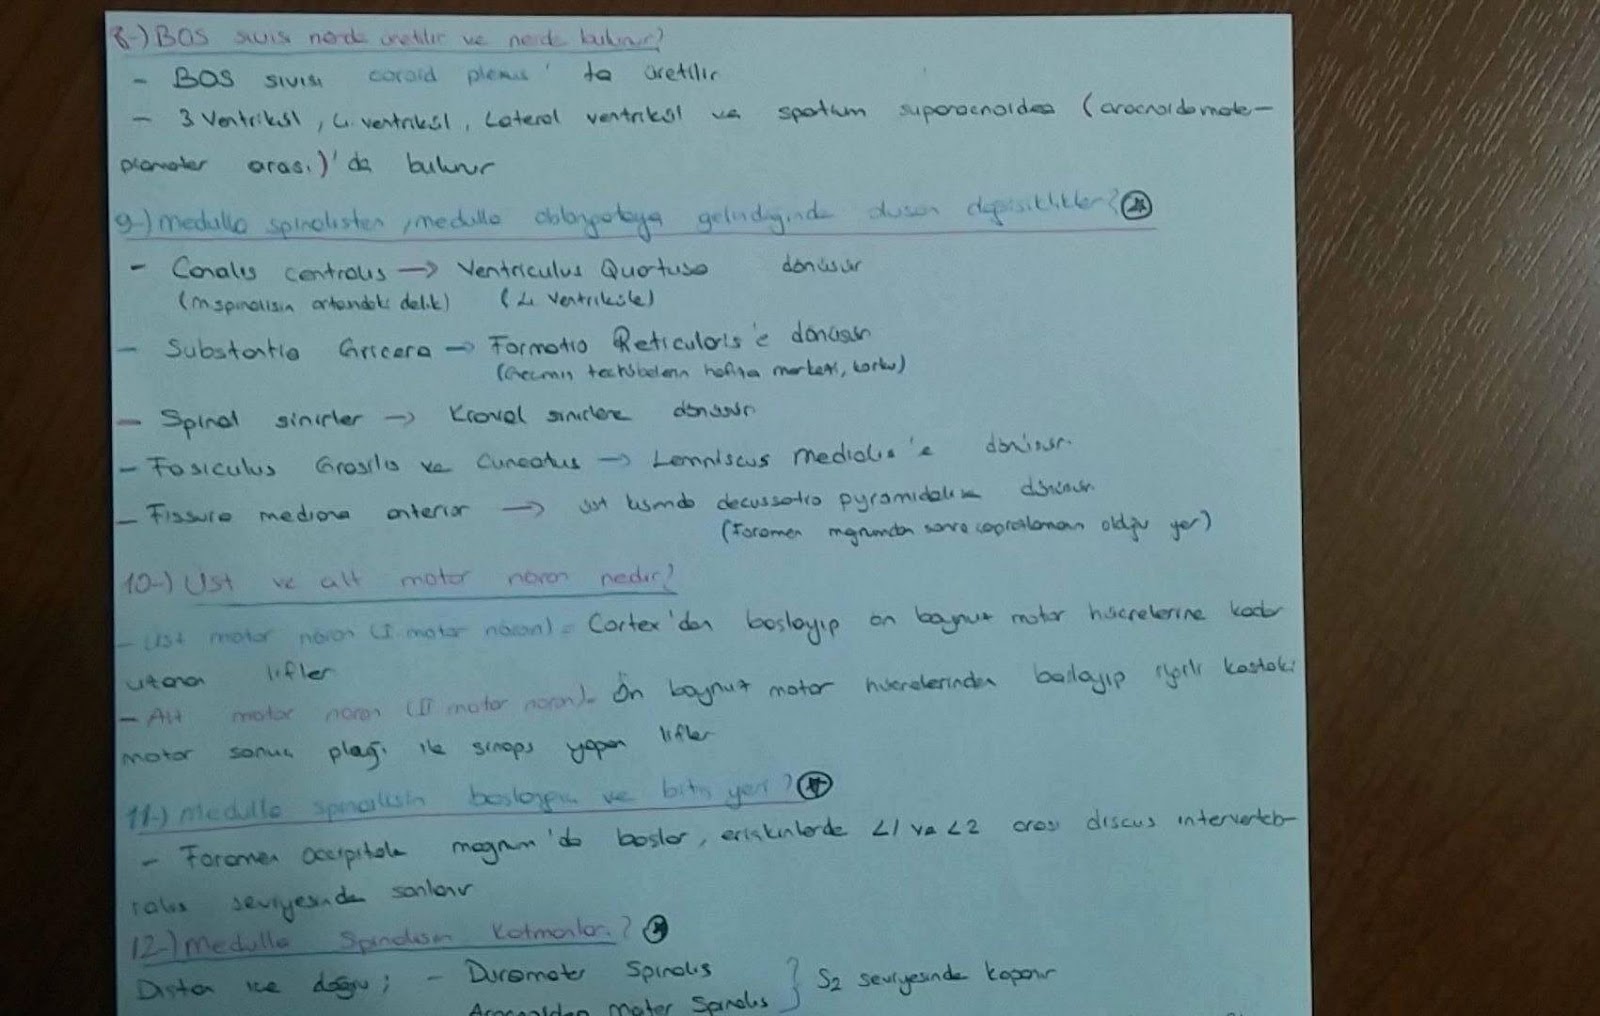 8-) BOS sıvısı nerde üretilir ve nerde bulunur?
- BOS sıvısı coroid plexus' ta üretilir
- 3 Ventrikül, 4. ventrikül, Lateral ventrikül ve spatium suparacnoidea (aracnoidamate-
piamater arası)'da bulunur
9-) medulla spinalisten, medulla oblangataya gelindiğinde oluşan değişiklikler?
- Canalis centralis → Ventriculus Quartusa dönüşür
(m spinalisin ortandaki delik) (4 Ventriküle)
- Substantia Gricera → Formatio Reticularis'e dönüşür
(Geçmiş tecrübelerin hafıza merkezi, korku)
- Spinal sinirler → Kranial sinirlere dönüşür
- Fasiculus Grasilis ve Cuneatus → Lemniscus Medialis'e dönüşür.
- Fissura mediana anterior → üst kısmında decussatio pyramidalise dönüşür
(Foramen magnumdan sonra çaprazlamanın olduğu yer)
10-) Üst ve alt motor nöron nedir?
- Üst motor nöron (I. motor nöron) = Cortex'den başlayıp ön boynuz motor hücrelerine kadar
uzanan lifler
- Alt motor nöron (II motor nöron)= Ön boynuz motor hücrelerinden başlayıp ilgili kastaki
motor sonuç plağı ile sinaps yapan lifler
11-) medulla spinalisin başlangıcı ve bitiş yeri?
- Foramen occipitale magnum'da başlar, erişkinlerde L1 ve L2 arası discus interverteb-
ralis seviyesinde sonlanır
12-) medulla Spinalisin Katmanları?
Dıştan içe doğru; - Duramater Spinalis } S2 seviyesinde kapanır
mater Spinalis